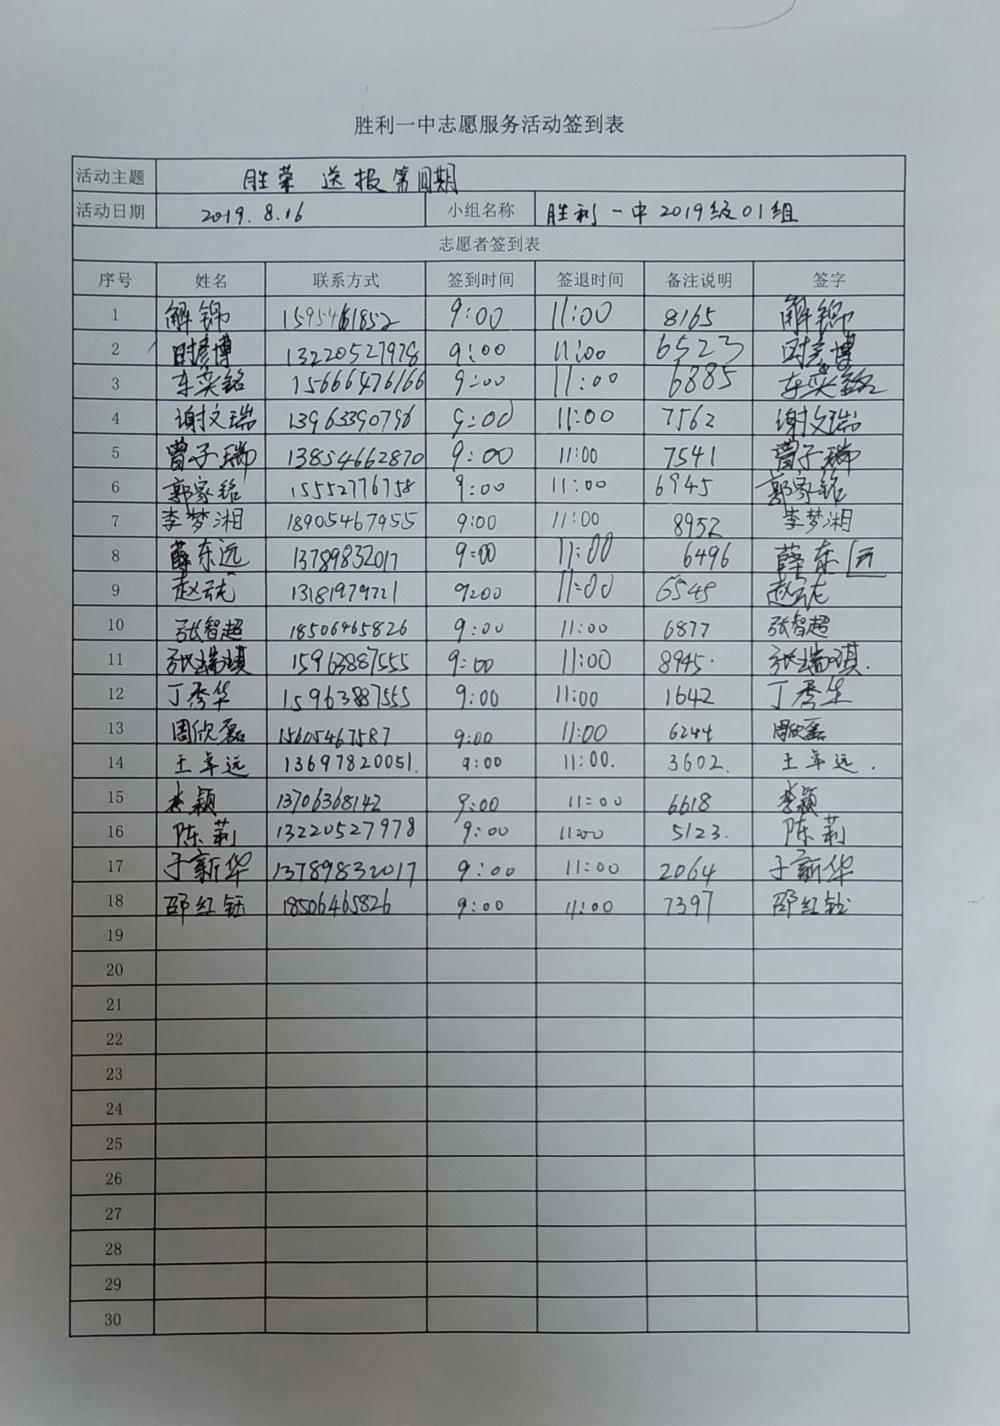 胜利一中志愿服务活动签到表
活动主题 胜荣 送报第四期
活动日期 2019.8.16 小组名称 胜利一中2019级01组
志愿者签到表
序号 姓名 联系方式 签到时间 签退时间 备注说明 签字
1 解锦 15954661852 9:00 11:00 8165 解锦
2 时彦博 13220527978 9:00 11:00 6523 时彦博
3 车奕铭 15666476166 9:00 11:00 6885 车奕铭
4 谢文瑞 13963390796 9:00 11:00 7562 谢文瑞
5 曾子瑞 13854662870 9:00 11:00 7541 曾子瑞
6 郭家铭 15552776758 9:00 11:00 6945 郭家铭
7 李梦湘 18905467955 9:00 11:00 8952 李梦湘
8 薛东远 13789832017 9:00 11:00 6496 薛东远
9 赵云龙 13181979721 9:00 11:00 6545 赵云龙
10 张智超 18506465826 9:00 11:00 6877 张智超
11 张瑞琪 15963887555 9:00 11:00 8945. 张瑞琪.
12 丁秀华 15963887555 9:00 11:00 1642 丁秀华
13 周欣磊 15605467587 9:00 11:00 6244 周欣磊
14 王年远 13697820051. 9:00 11:00. 3602. 王年远.
15 李颖 13706368142 9:00 11:00 6618 李颖
16 陈莉 13220527978 9:00 11:00 5123. 陈莉
17 于新华 13789832017 9:00 11:00 2064 于新华
18 邵红钰 18506465826 9:00 11:00 7397 邵红钰
19
20
21
22
23
24
25
26
27
28
29
30